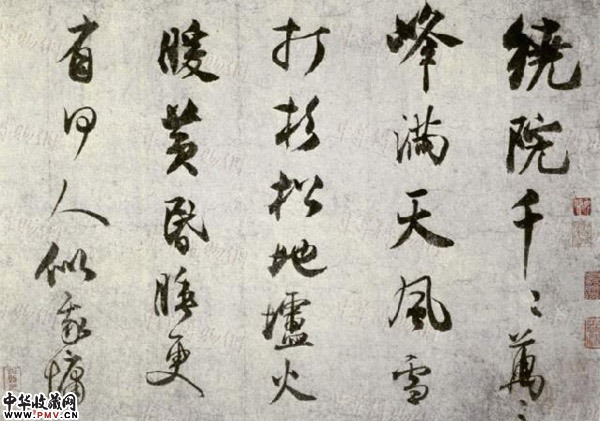 繞院千〻萬〻
峰滿天風雪
打杉松地壚火
暖黃昏睡更
有何人似我慵
中华收藏网
WWW.PMV.CN